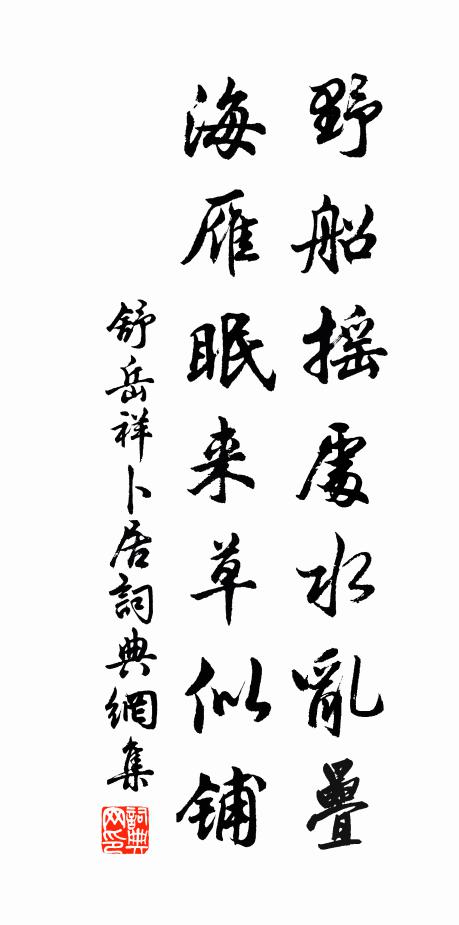 野船摇處水亂疊
海雁眠来草似铺
舒岳祥卜居詞典網集
詞典网印